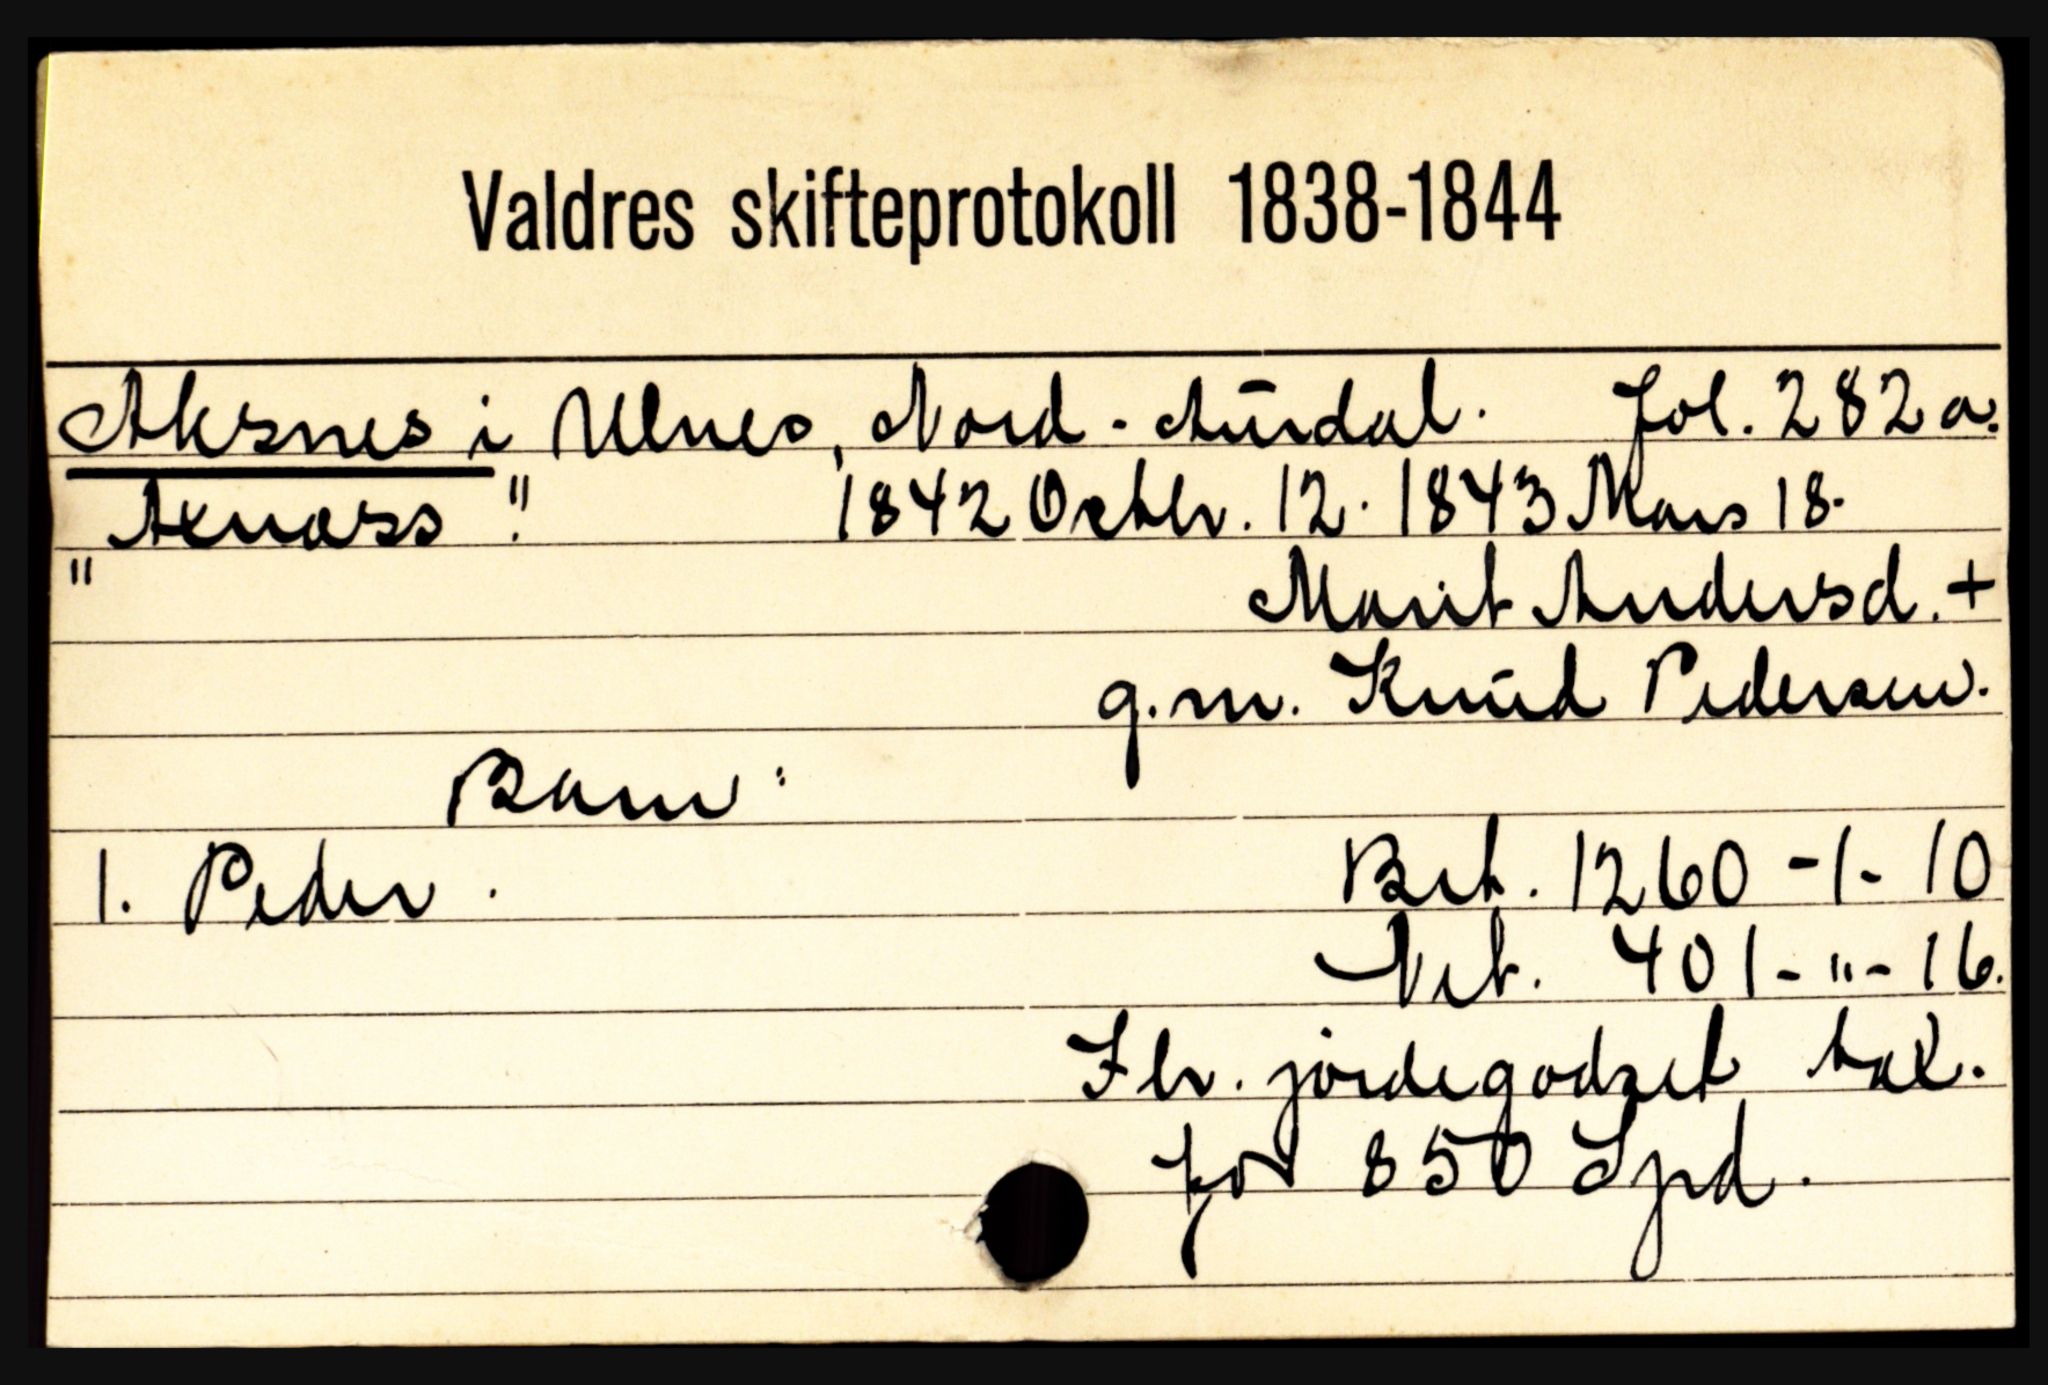 Valdres skifteprotokoll 1838-1844
Aksnes i Ulnes, Nord-Aurdal. fol. 282 a.
" Axnæss " 1842 Octbr. 12. 1843 Mars 18.
Marit Andersd. +
g.m. Knud Pedersen.
Barn:
1. Peder. Brt. 1260 - 1 - 10
Net. 401 - " - 16.
Ibr. jordegodset tax.
for 850 Spd.